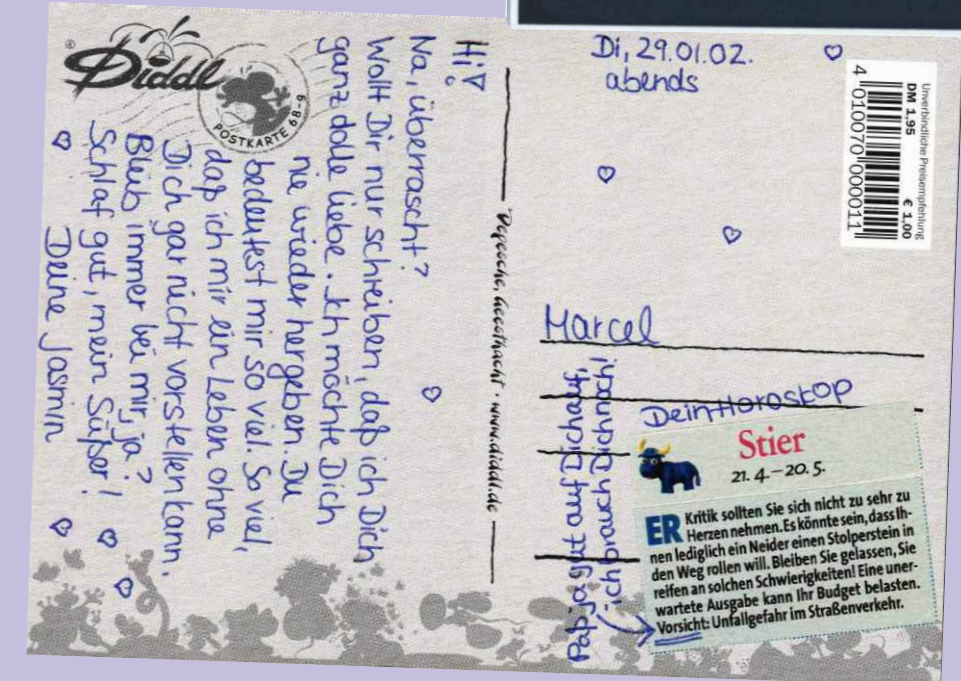 Diddl
®
POSTKARTE 68-9
Hi!
Na, überrascht?
Wollt Dir nur schreiben, daß ich Dich
ganz dolle liebe. Ich möchte Dich
nie wieder hergeben. Du
bedeutest mir so viel. So viel,
daß ich mir ein Leben ohne
Dich gar nicht vorstellen kann.
Bleib immer bei mir, ja?
Schlaf gut, mein Süßer!
Deine Jasmin
Depesche, Geesthacht · www.diddl.de
Di, 29.01.02.
abends
Unverbindliche Preisempfehlung
DM 1,95 € 1,00
4 010070 000011
Marcel
Paß ja gut auf Dich auf,
ich brauch Dich noch!
Dein Horoskop
Stier
21. 4.–20. 5.
ER Kritik sollten Sie sich nicht zu sehr zu
Herzen nehmen. Es könnte sein, dass Ih-
nen lediglich ein Neider einen Stolperstein in
den Weg rollen will. Bleiben Sie gelassen, Sie
reifen an solchen Schwierigkeiten! Eine uner-
wartete Ausgabe kann Ihr Budget belasten.
Vorsicht: Unfallgefahr im Straßenverkehr.